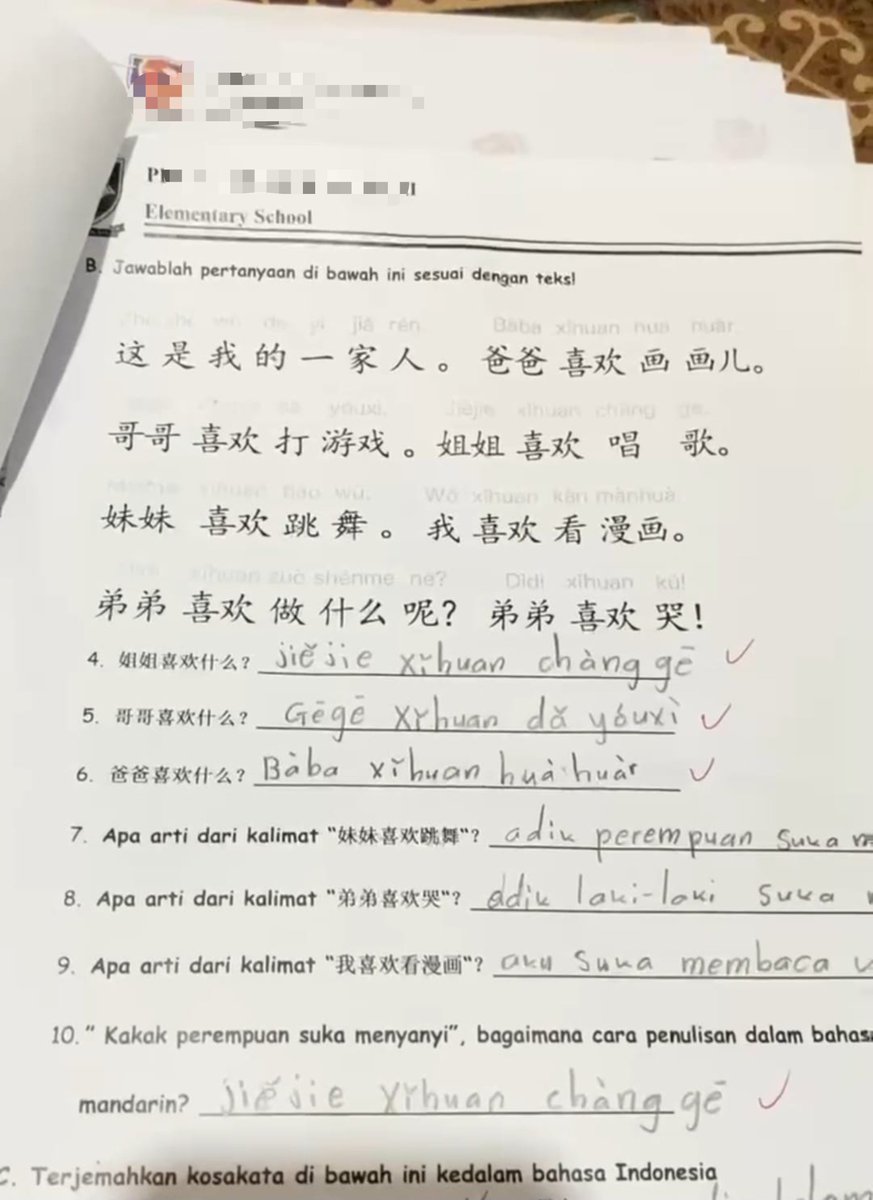 Elementary School
B. Jawablah pertanyaan di bawah ini sesuai dengan teks!
jiā rén. Bàba xǐhuan huà huàr.
这是我的一家人。爸爸喜欢画画儿。
yóuxì. Jiějie xǐhuan chàng gē.
哥哥喜欢打游戏。姐姐喜欢唱歌。
xǐhuan tiào wǔ. Wǒ xǐhuan kàn mànhuà.
妹妹喜欢跳舞。我喜欢看漫画。
xǐhuan zuò shénme ne? Dìdi xǐhuan kū!
弟弟喜欢做什么呢？弟弟喜欢哭！
4. 姐姐喜欢什么？ jiějie xǐhuan chàng gē
5. 哥哥喜欢什么？ Gēgē xǐhuan dǎ yóuxì
6. 爸爸喜欢什么？ Bàba xǐhuan huà huàr
7. Apa arti dari kalimat "妹妹喜欢跳舞"? adik perempuan suka
8. Apa arti dari kalimat "弟弟喜欢哭"? adik laki-laki suka
9. Apa arti dari kalimat "我喜欢看漫画"? aku suka membaca
10. " Kakak perempuan suka menyanyi", bagaimana cara penulisan dalam bahasa
mandarin? jiějie xǐhuan chàng gē
C. Terjemahkan kosakata di bawah ini kedalam bahasa Indonesia